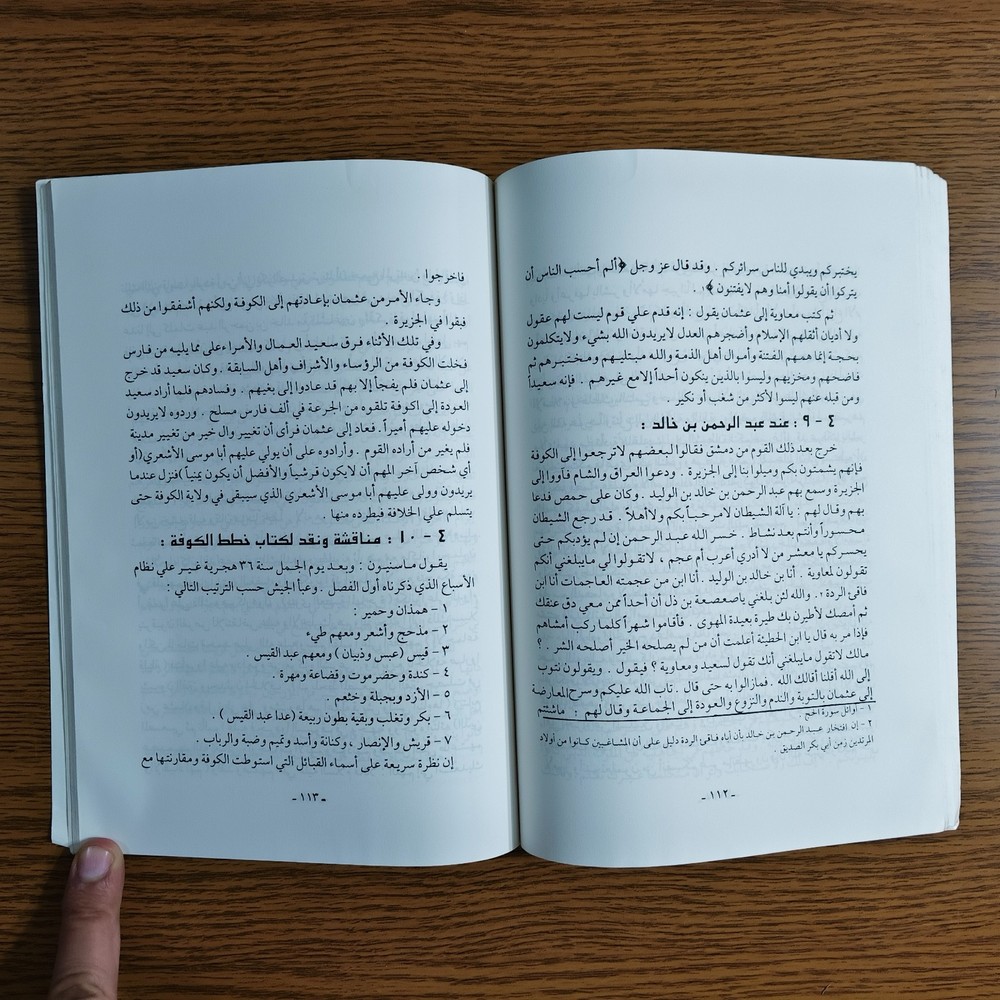 يختبركم ويبدي للناس سرائركم . وقد قال عز وجل ﴿ألم أحسب الناس أن
يتركوا أن يقولوا أمنا وهم لايفتنون ﴾١ .
ثم كتب معاوية إلى عثمان يقول : إنه قدم علي قوم ليست لهم عقول
ولا أديان أثقلهم الإسلام وأضجرهم العدل لايريدون الله بشيء ولايتكلمون
بحجة إنما همهم الفتنة وأموال أهل الذمة والله مبتليهم ومختبرهم ثم
فاضحهم ومخزيهم وليسوا بالذين ينكون أحداً إلامع غيرهم . فإنه سعيداً
ومن قبله عنهم ليسوا لأكثر من شغب أو نكير .
٤ - ٩ : عند عبد الرحمن بن خالد :
خرج بعد ذلك القوم من دمشق فقالوا لبعضهم لاترجعوا إلى الكوفة
فإنهم يشمتون بكم وميلوا بنا إلى الجزيرة . ودعوا العراق والشام فآووا إلى
الجزيرة وسمع بهم عبد الرحمن بن خالد بن الوليد . وكان على حمص فدعا
بهم وقال لهم : يا آلة الشيطان لامرحباً بكم ولاأهلاً . قد رجع الشيطان
محسوراً وأنتم بعد نشاط . خسر الله عبد الرحمن إن لم يؤدبكم حتى
يحسركم يا معشر من لا أدري أعرب أم عجم ، لاتقولوا لي مايبلغني أنكم
تقولون لمعاوية . أنا بن خالد بن الوليد . أنا ابن من عجمته العاجمات أنا ابن
فاقئ الردة٢ . والله لئن بلغني ياصعصعة بن ذل أن أحداً ممن معي دق عنقك
ثم أمصك لأطيرن بك طيرة بعيدة المهوى . فأقاموا شهراً كلما ركب أمشاهم
فإذا مر به قال يا ابن الحطيئة أعلمت أن من لم يصلحه الخير أصلحه الشر . ؟
مالك لاتقول مايبلغني أنك تقول لسعيد ومعاوية ؟ فيقول . ويقولون نتوب
إلى الله أقلنا أقالك الله . فمازالوا به حتى قال . تاب الله عليكم وسرح المعارضة
إلى عثمان بالتوبة والندم والنزوع والعودة إلى الجماعة وقال لهم : ماشئتم
١ - أوائل سورة الحج .
٢ - إن إفتخار عبد الرحمن بن خالد بأن أباه فاقئ الردة دليل على أن المشاغبين كانوا من أولاد
المرتدين زمن أبي بكر الصديق .
-١١٢-
فاخرجوا .
وجاء الأمر من عثمان بإعادتهم إلى الكوفة ولكنهم أشفقوا من ذلك
فبقوا في الجزيرة .
وفي تلك الأثناء فرق سعيد العمال والأمراء على مما يليه من فارس
فخلت الكوفة من الرؤساء والأشراف وأهل السابقة . وكان سعيد قد خرج
إلى عثمان فلم يفجأ إلا بهم قد عادوا إلى بغيهم . وفسادهم فلما أراد سعيد
العودة إلى اكوفة تلقوه من الجرعة في ألف فارس مسلح . وردوه لايريدون
دخوله عليهم أميراً . فعاد إلى عثمان فرأى أن تغيير وال خير من تغيير مدينة
فلم يغير من أراده القوم . وأرادوه على أن يولي عليهم أبا موسى الأشعري(أو
أي شخص آخر المهم أن لايكون قرشياً والأفضل أن يكون يمنياً )فنزل عندما
يريدون وولى عليهم أبا موسى الأشعري الذي سيبقى في ولاية الكوفة حتى
يتسلم علي الخلافة فيطرده منها .
٤ - ١٠ : مناقشة ونقد لكتاب خطط الكوفة :
يقول ماسنيون : وبعد يوم الجمل سنة ٣٦ هجرية غير علي نظام
الأسباع الذي ذكرناه أول الفصل . وعبأ الجيش حسب الترتيب التالي :
١ - همذان وحمير :
٢ - مذحج وأشعر ومعهم طيء
٣ - قيس (عبس وذبيان ) ومعهم عبد القيس .
٤ - كندة وحضرموت وقضاعة ومهرة .
٥ - الأزد وبجيلة وخثعم .
٦ - بكر وتغلب وبقية بطون ربيعة (عدا عبد القيس ) .
٧ - قريش والإنصار ، وكنانة وأسد وتميم وضبة والرباب .
إن نظرة سريعة على أسماء القبائل التي استوطت الكوفة ومقارنتها مع
-١١٣-